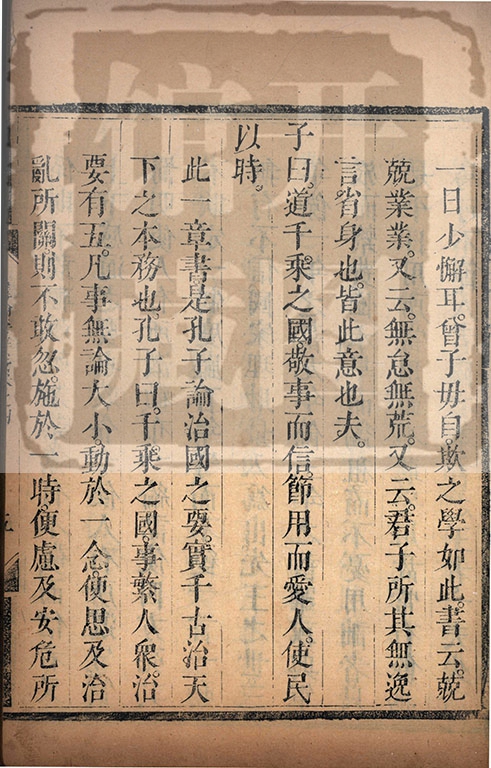 一日少懈耳。曾子毋自欺之學如此。書云。兢
兢業業。又云。無怠無荒。又云。君子所其無逸
言省身也。皆此意也夫。
子曰。道千乘之國。敬事而信。節用而愛人。使民
以時。
此一章書是孔子論治國之要。實千古治天
下之本務也。孔子曰。千乘之國。事繁人衆。治
要有五。凡事無論大小。動於一念。便思及治
亂所關。則不敢忽。施於一時。便慮及安危所